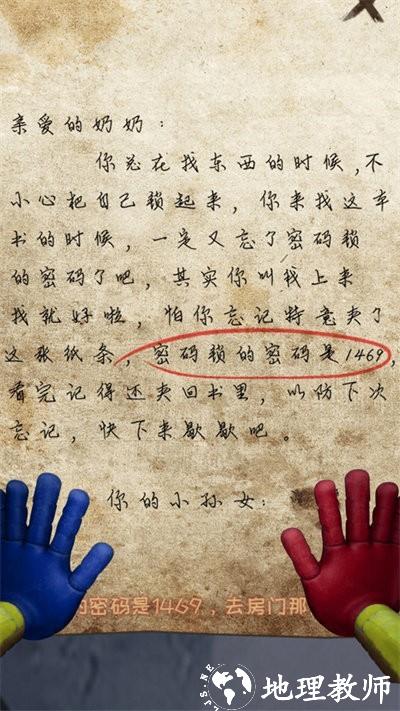 亲爱的奶奶：
你总在找东西的时候，不
小心把自己锁起来，你来找这本
书的时候，一定又忘了密码锁
的密码了吧，其实你叫我上来
找就好啦，怕你忘记特意夹了
这张纸条，密码锁的密码是1469，
看完记得还夹回书里，以防下次
忘记，快下来歇歇吧。
你的小孙女：
的密码是1469，去房门那
JS.NE
地理教师